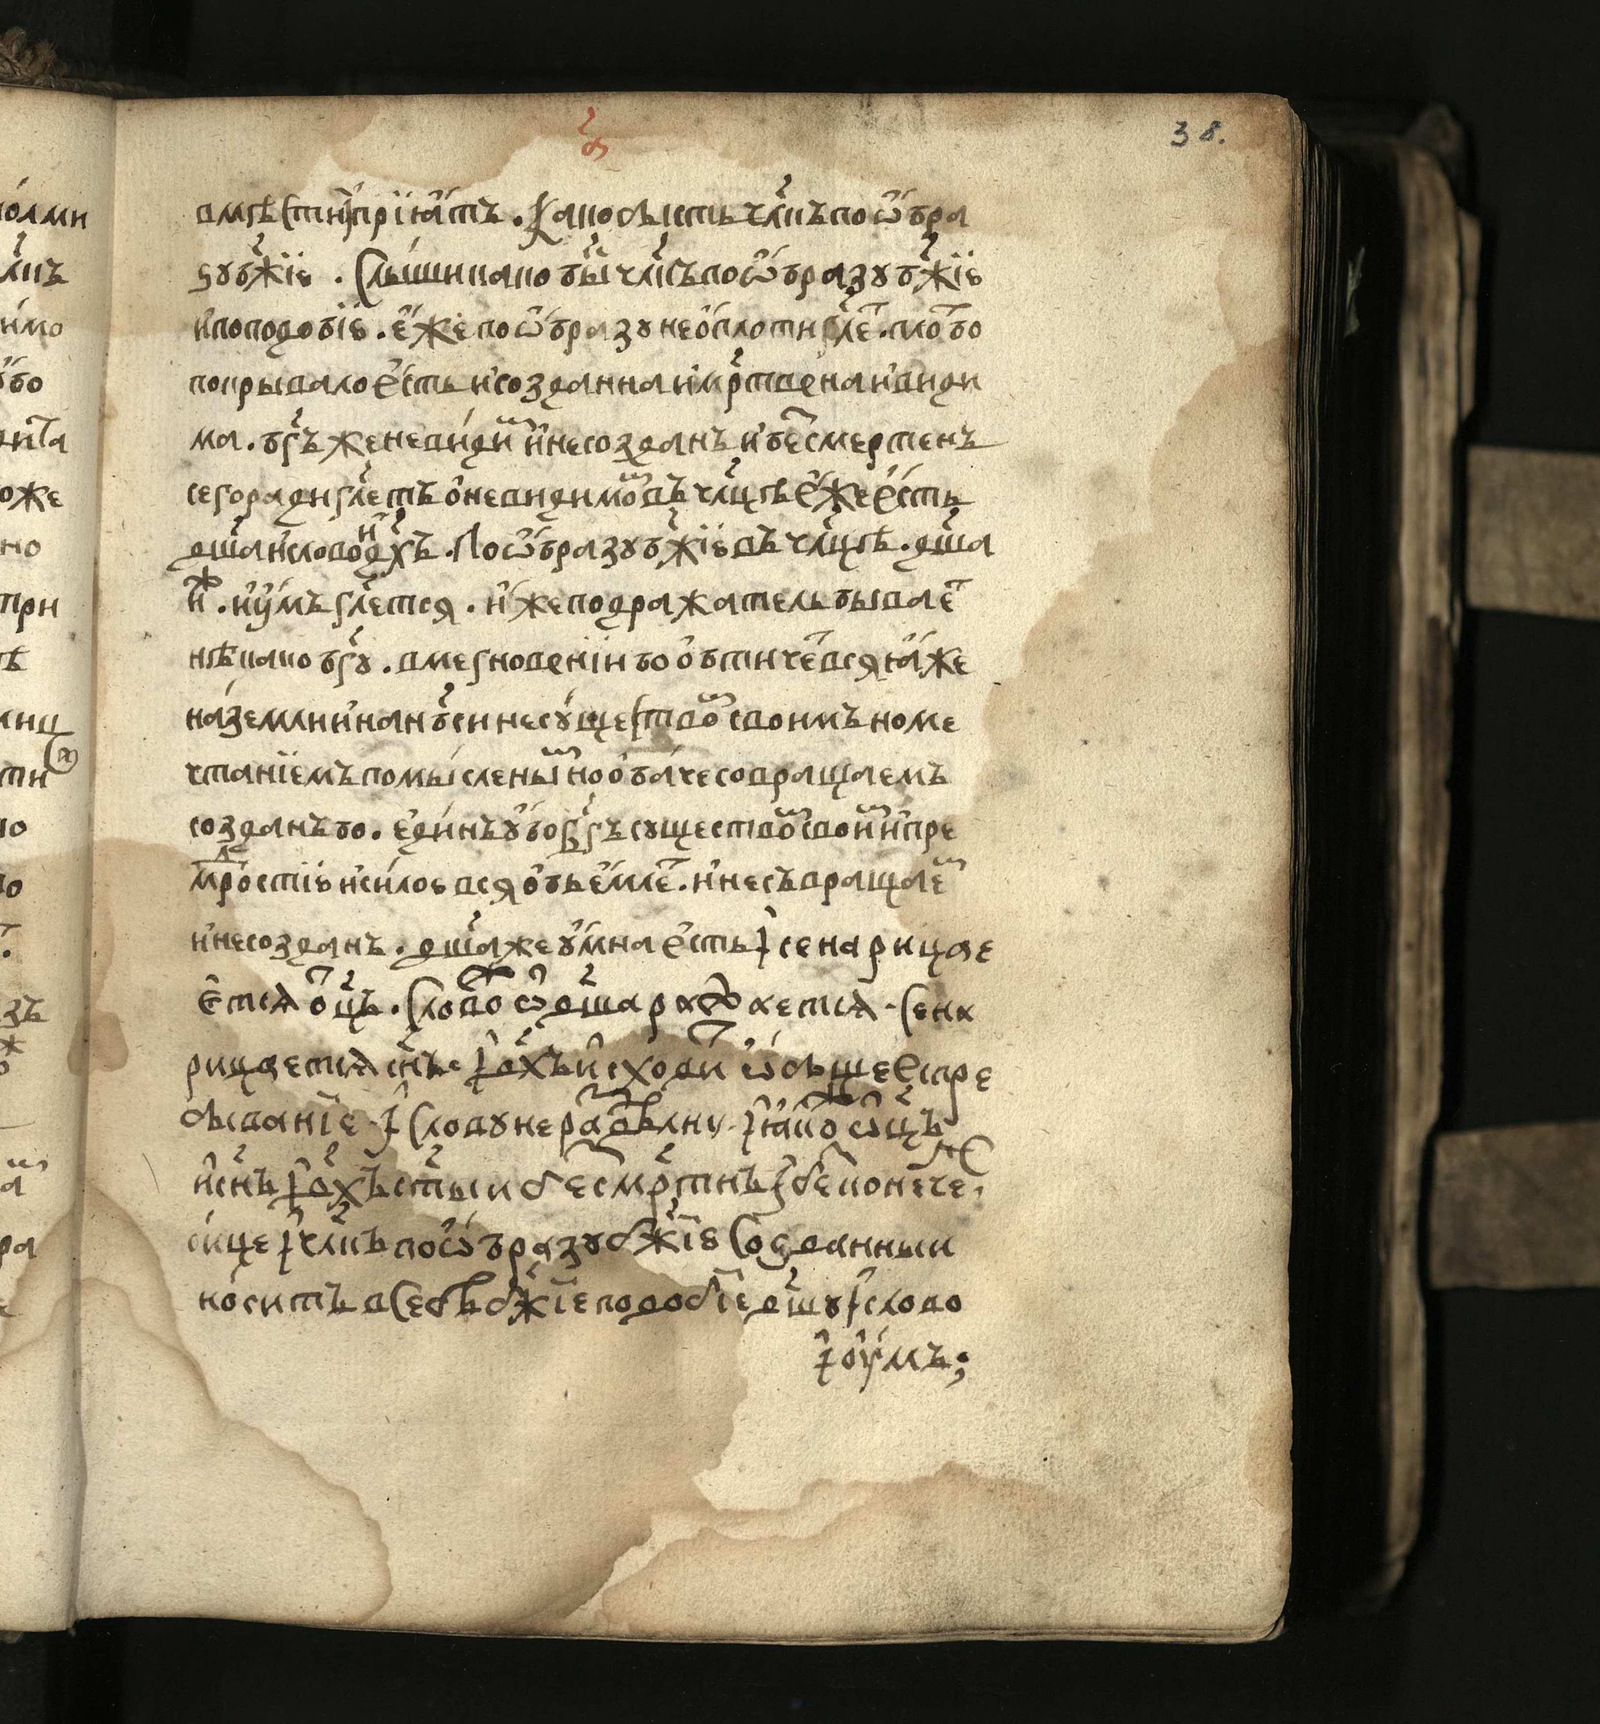 38.
вмѣстити прїѧтъ . Како бысть чл҃къ по ѡбра
зу бж҃їю . Слыши како бы чл҃къ по ѡбразу бж҃їю
и по подобїю . еже по ѡбразу не о плоти гл҃е . пло бо
покрывало есть и созданна и мр҃твена и види
ма . бг҃ъ же невиди и несозданъ и бесмертенъ
сего ради гл҃етъ о невидимо въ чл҃цѣ еже есть
дш҃а и слово и дх҃ъ . По ѡбразу бж҃їю въ чл҃цѣ . дш҃а
и . и ꙋмъ гл҃ется . иже подражатель бывае
нѣкако бг҃у . вмегновенїи бо обтиче вся ꙗже
на земли и на нб҃си не существо своимъ но ме
чтанїемъ помыслены но обаче совращаемъ
созданъ бо . единъ убо бг҃ъ существо свои и пре
мрⷣостїю и силою вся обьемле . и несъвращае
и несозданъ . дш҃а же умна есть і се нарицае
етсѧ оц҃ъ . Слово ѿ дш҃а ражаетсѧ . Се на
рицаетсѧ сн҃ъ . і дх҃ъ исходи ѿ
быванїе . і Слову нераⷥдѣлну . і ꙗко ѡц҃ъ
и сн҃ъ і дх҃ъ ст҃ыи бесмр҃тнъ і беконече
сице і чл҃къ по ѡбразу бж҃їю Созданныи
носитъ в Себѣ бж҃їе подобїе дш҃у і слово
і оумъ ;